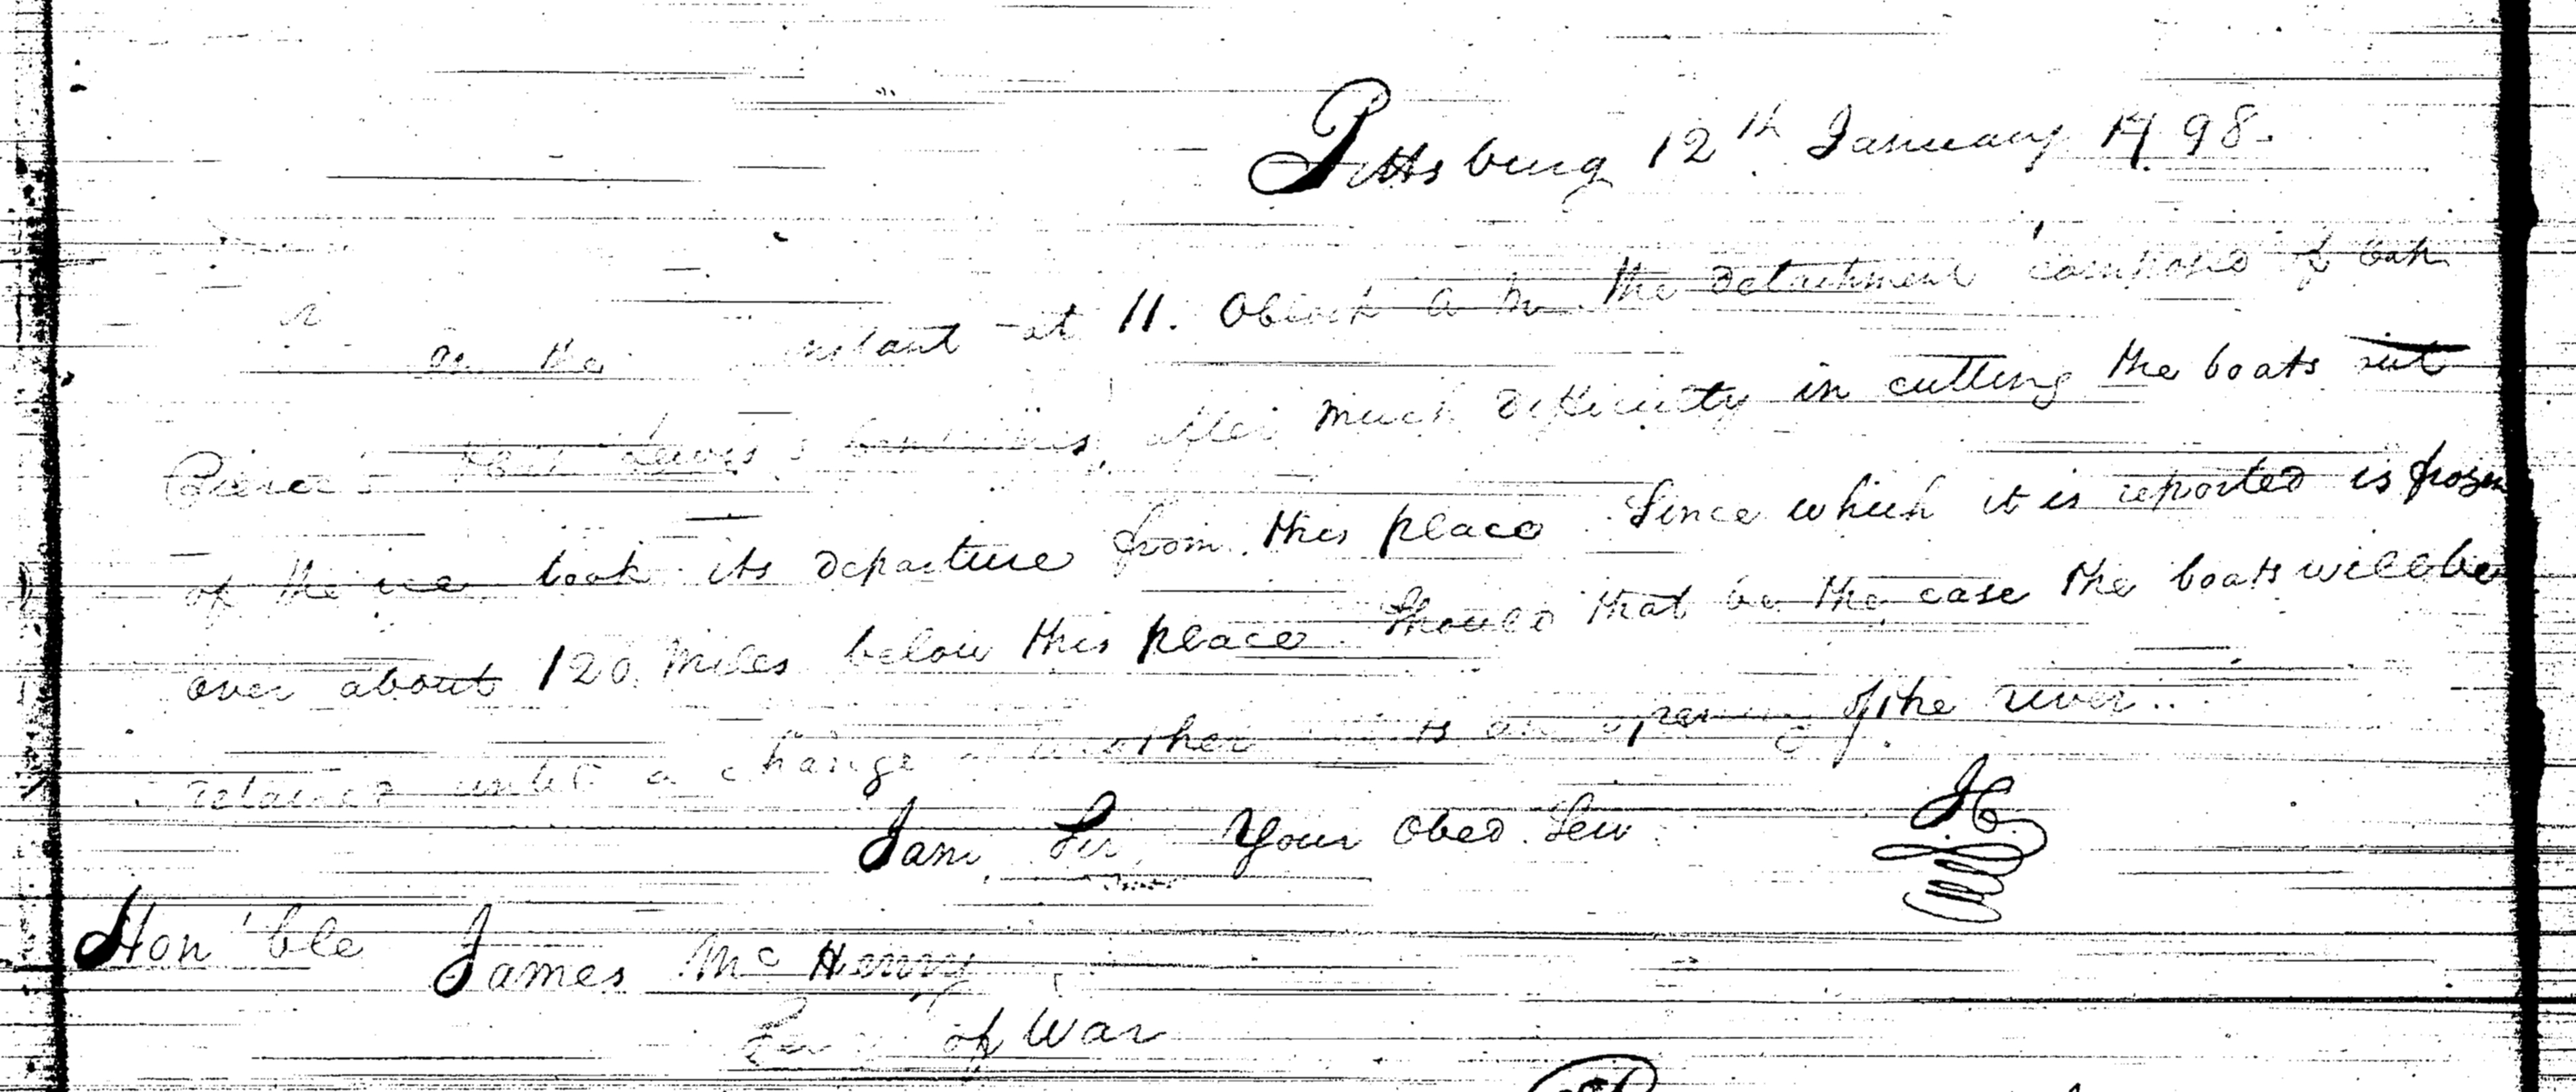 Pittsburg 12th January 1798.
on the instant at 11. OClock a m the detachment composed of Capt
Pierce's & Capt Lewis's Companies, after much difficulty in cutting the boats out
of the ice took its departure from this place Since which it is reported is frozen
over about 120 Miles below this place Should that be the case the boats will be
retained until a change of weather opening of the river..
I am, Sir, Your Obed. Serv.
JC
Hon'ble James McHenry
Secy of War